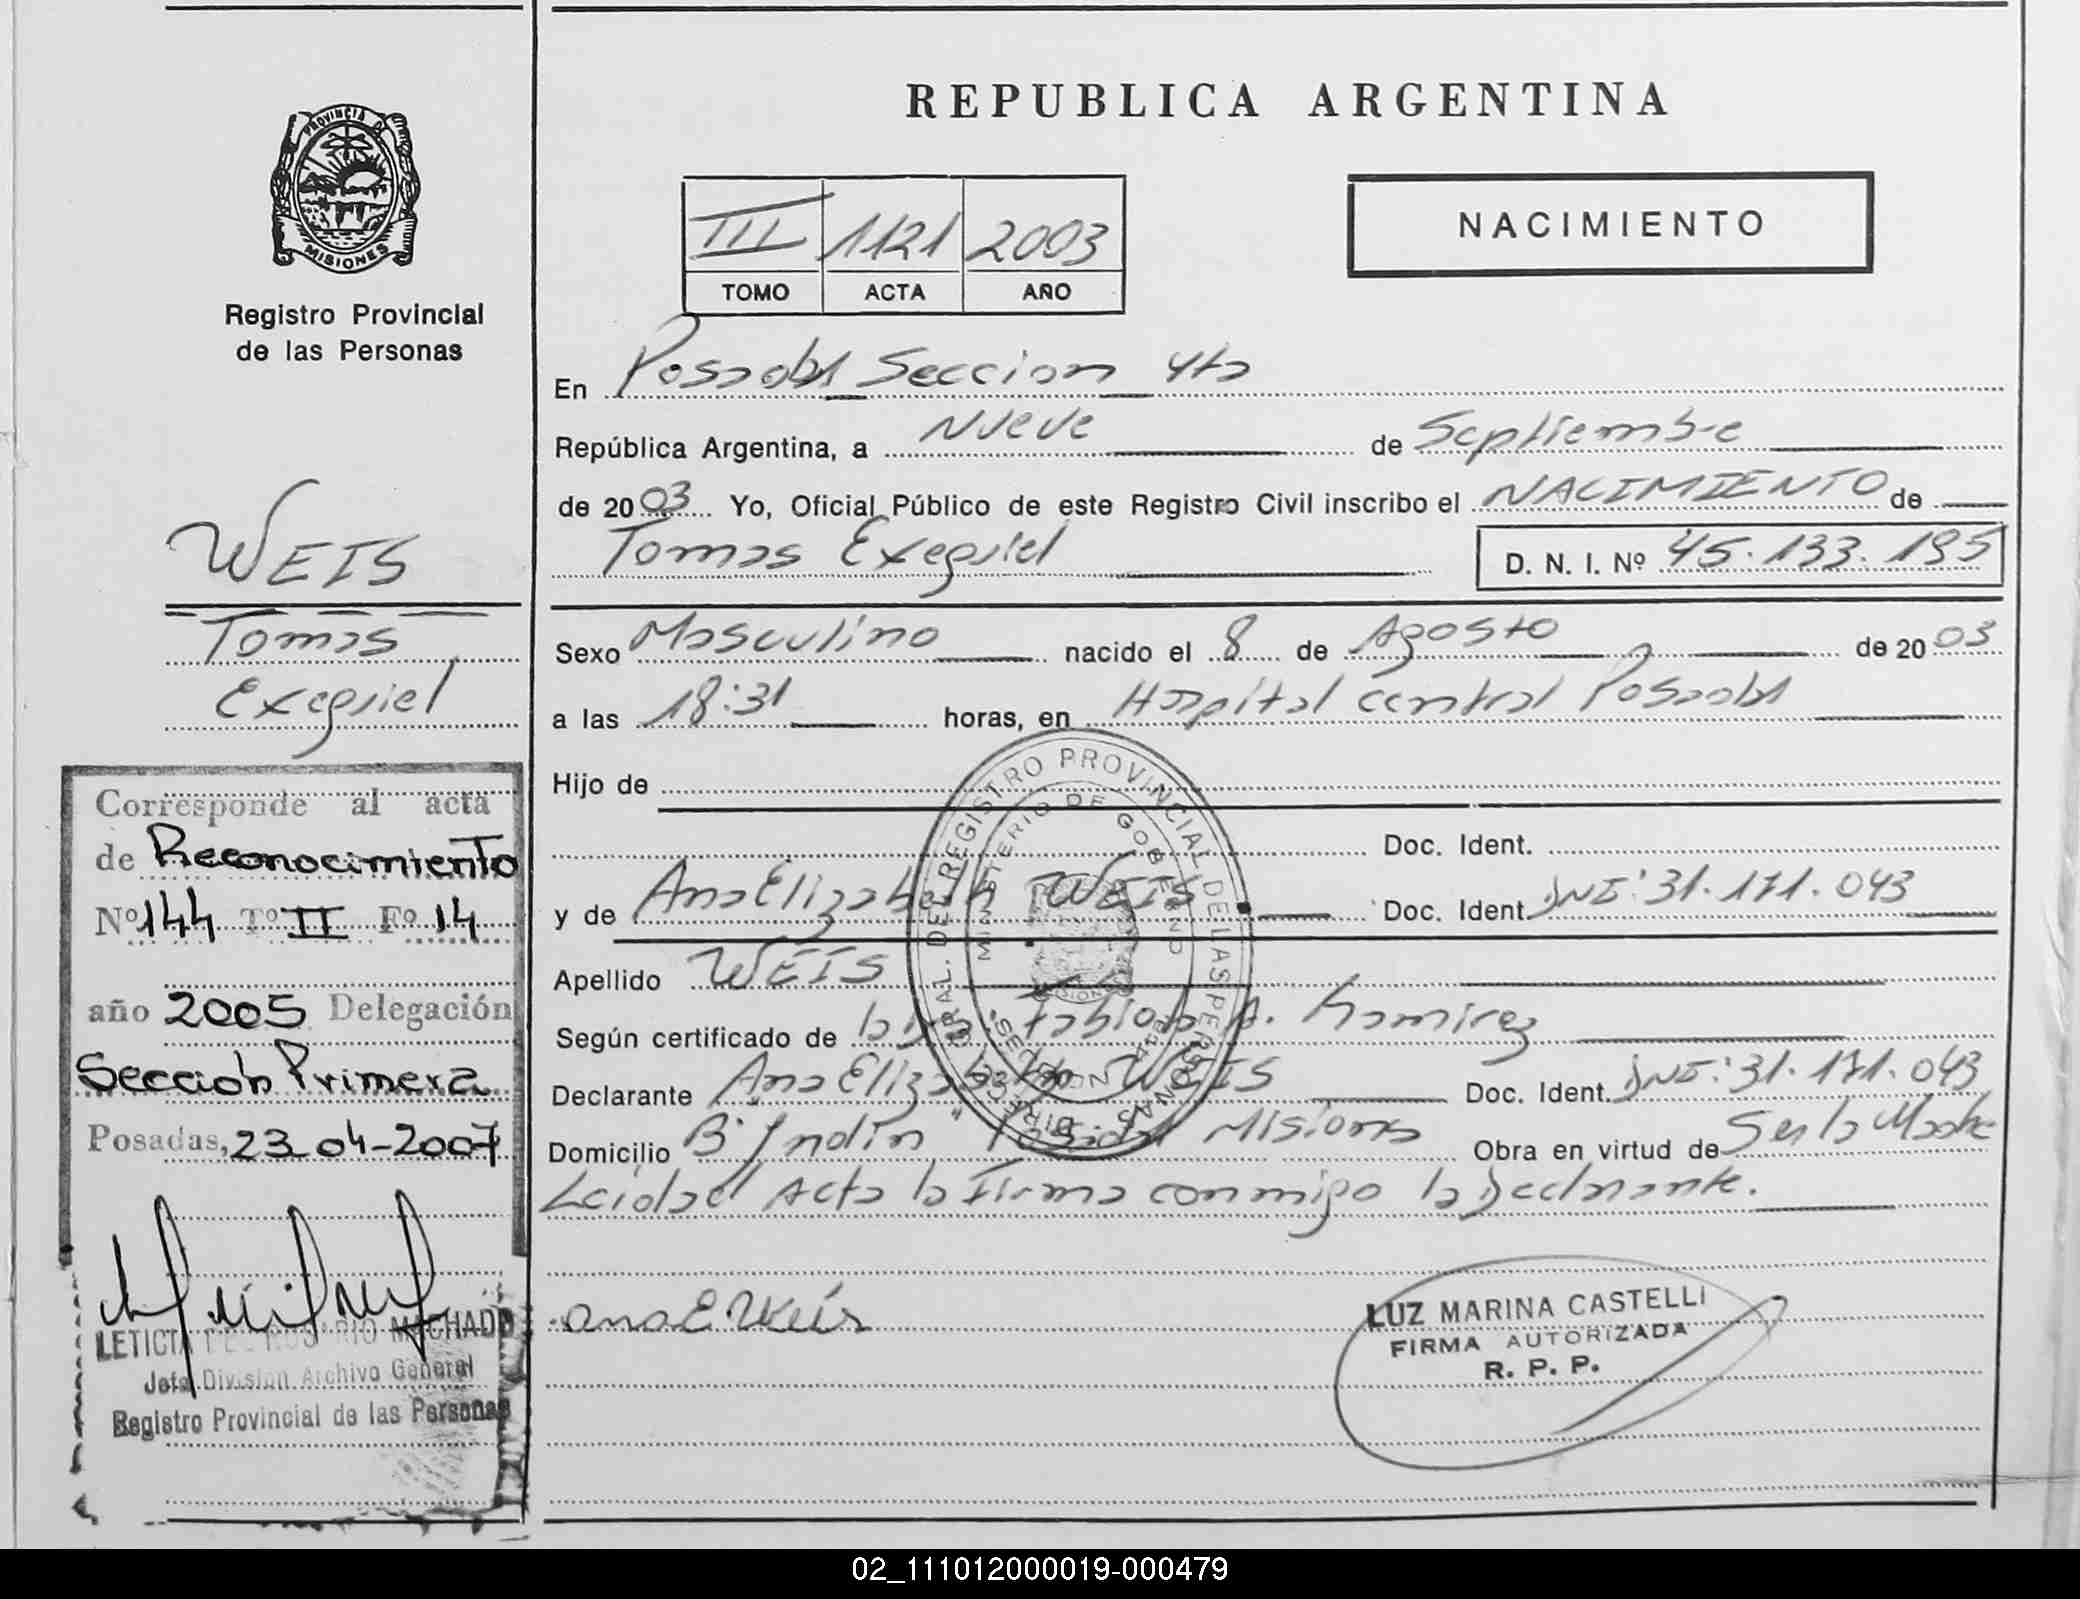 REPUBLICA ARGENTINA
PROVINCIA DE
MISIONES
Registro Provincial
de las Personas
III 1121 2003
TOMO ACTA AÑO
NACIMIENTO
En Posadas Seccion 4ta
República Argentina, a Nueve de Septiembre
de 2003 Yo, Oficial Público de este Registro Civil inscribo el NACIMIENTO de
Tomas Exequiel D. N. I. Nº 45.133.195
Sexo Masculino nacido el 8 de Agosto de 2003
a las 18:31 horas, en Hospital central Posadas
Hijo de
Doc. Ident.
y de Ana Elizabeth WEIS Doc. Ident. DNI: 31.171.043
Apellido WEIS
Según certificado de la Fabiola A. Ramirez
Declarante Ana Elizabeth WEIS Doc. Ident. DNI: 31.171.043
Domicilio Bº Posadas Misiones Obra en virtud de Ser la Madre
Leida el Acta la Firma conmigo la Declarante.
Ana E Weis
LUZ MARINA CASTELLI
FIRMA AUTORIZADA
R. P. P.
WEIS
Tomas
Exequiel
Corresponde al acta
de Reconocimiento
Nº 144 Tº II Fº 14
año 2005 Delegación
Sección Primera
Posadas, 23-04-2007
LETICIA DEL ROSARIO MACHADO
Jefa Division Archivo General
Registro Provincial de las Personas
DIREC. GRAL. DEL REGISTRO PROVINCIAL DE LAS PERSONAS
MINISTERIO DE GOBIERNO
02_111012000019-000479